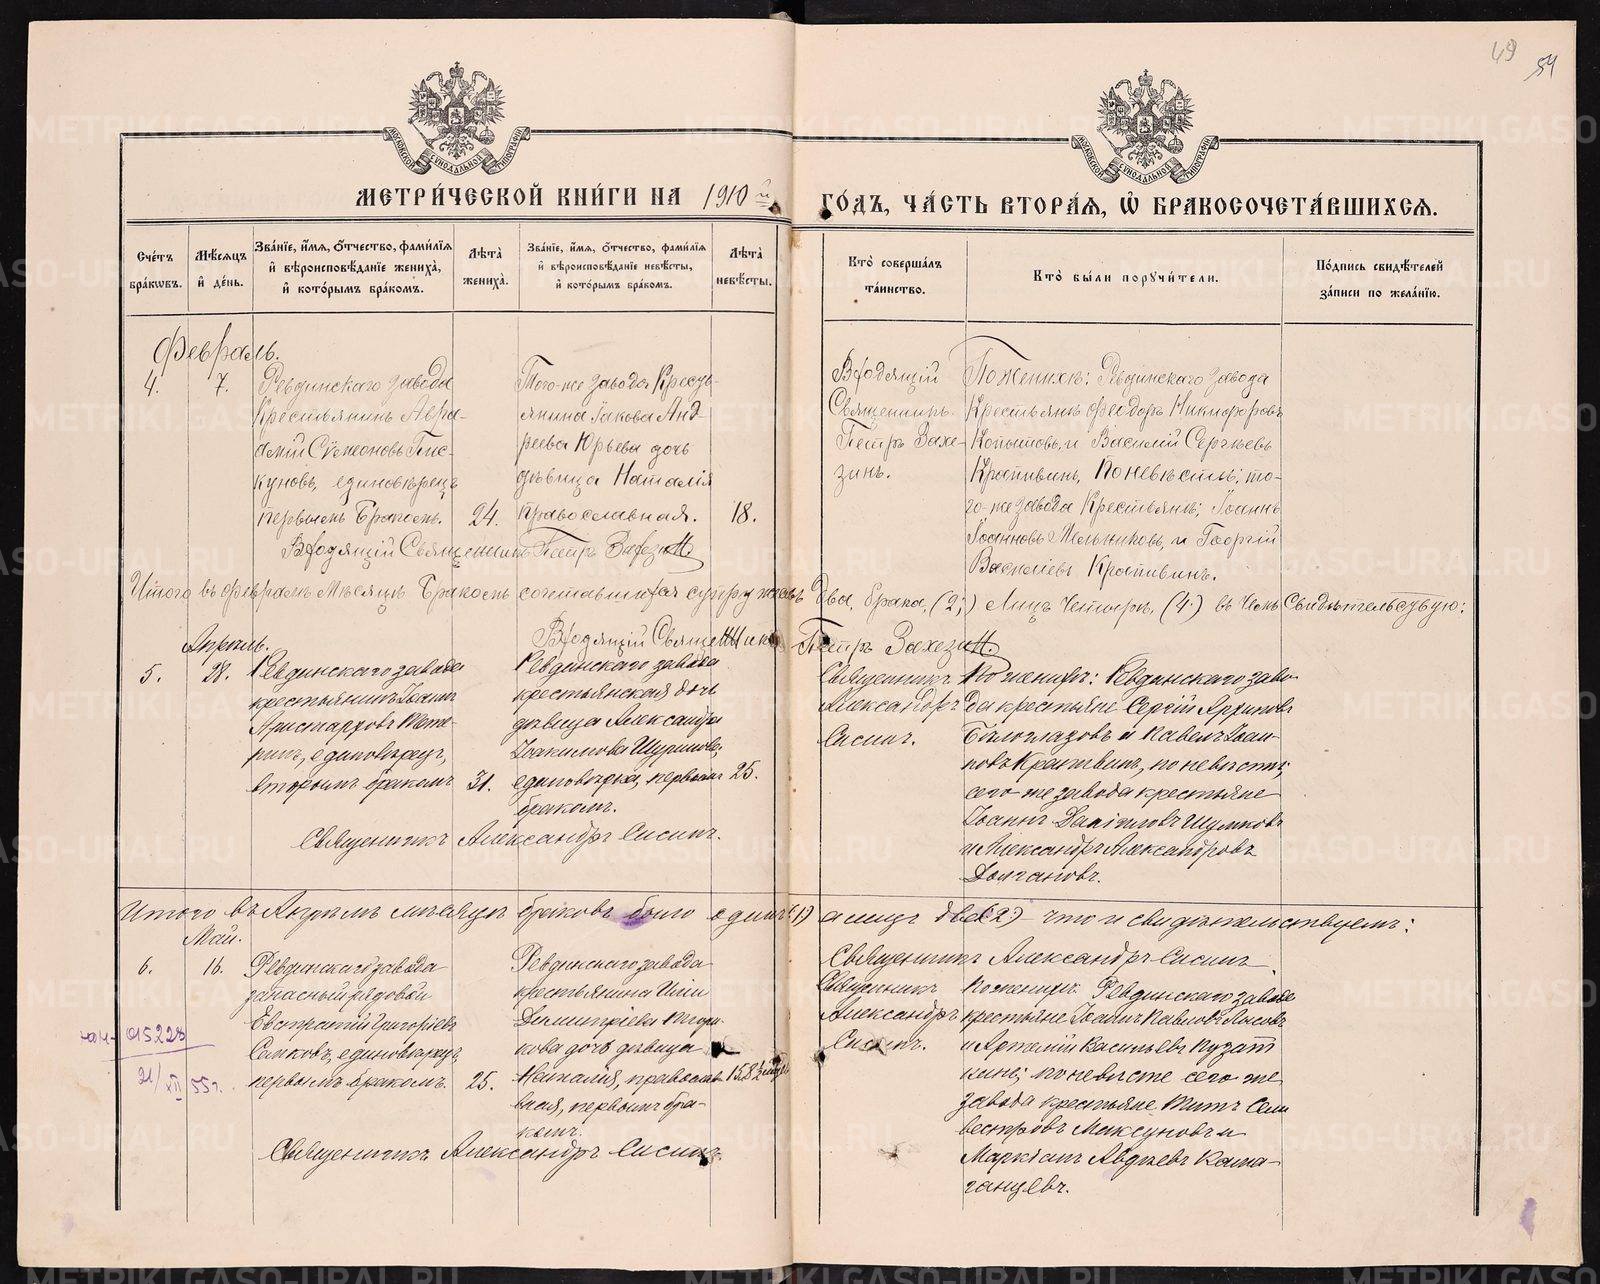 49 54
МОСКОВСКОЙ СѴНОДАЛЬНОЙ ТИПОГРАФІИ
МОСКОВСКОЙ СѴНОДАЛЬНОЙ ТИПОГРАФІИ
МЕТРИ́ЧЕСКОЙ КНИ́ГИ НА 1910 й
ГО́ДЪ, ЧА́СТЬ ВТОРА́Я, Ѡ БРАКОСОЧЕТА́ВШИХСЯ.
Сче́тъ бра́кѡвъ.
Мѣ́сяцъ и҆ де́нь.
Зва́нїе, и҆́мя, ѻ҆́тчество, фами́лїя и҆ вѣроисповѣ́данїе жениха̀, и҆ кото́рымъ бра́комъ.
Лѣта̀ жениха̀.
Зва́нїе, и҆́мя, ѻ҆́тчество, фами́лїя и҆ вѣроисповѣ́данїе невѣ́сты, и҆ кото́рымъ бра́комъ.
Лѣта̀ невѣ́сты.
Кто̀ соверша́лъ та́инство.
Кто̀ бы́ли поручи́тели.
По́дпись свидѣ́телей за́писи по жела́нїю.
Февраль.
4.
7.
Ревдинскаго завода
Крестьянинъ Авра-
амій Сѵмеоновъ Пис-
куновъ, единовѣрецъ
первымъ бракомъ.
24.
Того-же завода Кресть-
янина Іакова Анд-
реева Юрьева дочь
дѣвица Наталія
православная.
18.
Входящій Священникъ Петръ Захезин
Входящій
Священникъ
Петръ Захе-
зинъ.
По женихѣ: Ревдинскаго завода
Крестьяне Феодоръ Никифоровъ
Копытовъ, и Василій Сергѣевъ
Крапивинъ, По невѣстѣ; то-
го-же завода Крестьяне; Іоаннъ
Іоанновъ Мельниковъ, и Георгій
Василіевъ Крапивинъ.
Итого въ февралѣ мѣсяцѣ Бракомъ сочетавшихся супружествъ два, брака, (2;) Лицъ четыре, (4.) въ чемъ Свидѣтельствую:
Входящій Священникъ Петръ Захезин.
Апрѣль.
5.
28.
Ревдинскаго завода
крестьянинъ Іоаннъ
Аристарховъ
единовѣрецъ,
вторымъ бракомъ
31.
Ревдинскаго завода
крестьянская дочь
дѣвица Александра
Іоакимова
единовѣрка, первымъ
бракомъ.
25.
Священникъ Александръ Сисинъ.
Священникъ
Александръ
Сисинъ.
По женихѣ: Ревдинскаго заво-
да крестьяне Сергій Архиповъ
Бѣлоглазовъ и Павелъ Іоан-
новъ Крапивинъ, по невѣстѣ;
сего же завода крестьяне
Іоаннъ Даніиловъ Шумковъ
и Александръ Александровъ
Долгановъ.
Итого въ Апрѣлѣ мѣсяцѣ браковъ было одинъ (1) а лицъ два (2) что и свидѣтельствуемъ:
Священникъ Александръ Сисинъ
Май.
6.
16.
Ревдинскаго завода
запасный рядовой
Евстратій Григоріевъ
единовѣрецъ,
первымъ бракомъ.
25.
Ревдинскаго завода
крестьянина Иліи
Димитріева
кова дочь дѣвица
Наталія, православ-
ная, первымъ бра-
комъ.
Священникъ Александръ Сисинъ.
Священникъ
Александръ
Сисинъ.
По женихѣ Ревдинскаго завода
крестьяне Іоаннъ Павловъ
и Артемій Васильевъ
по невѣсте сего же
завода крестьяне Титъ Сели
вестровъ и
Маркіанъ Авдѣевъ Кама-
ганцевъ.
015228
21/XII 55г.
METRIKI.GASO-URAL.RU